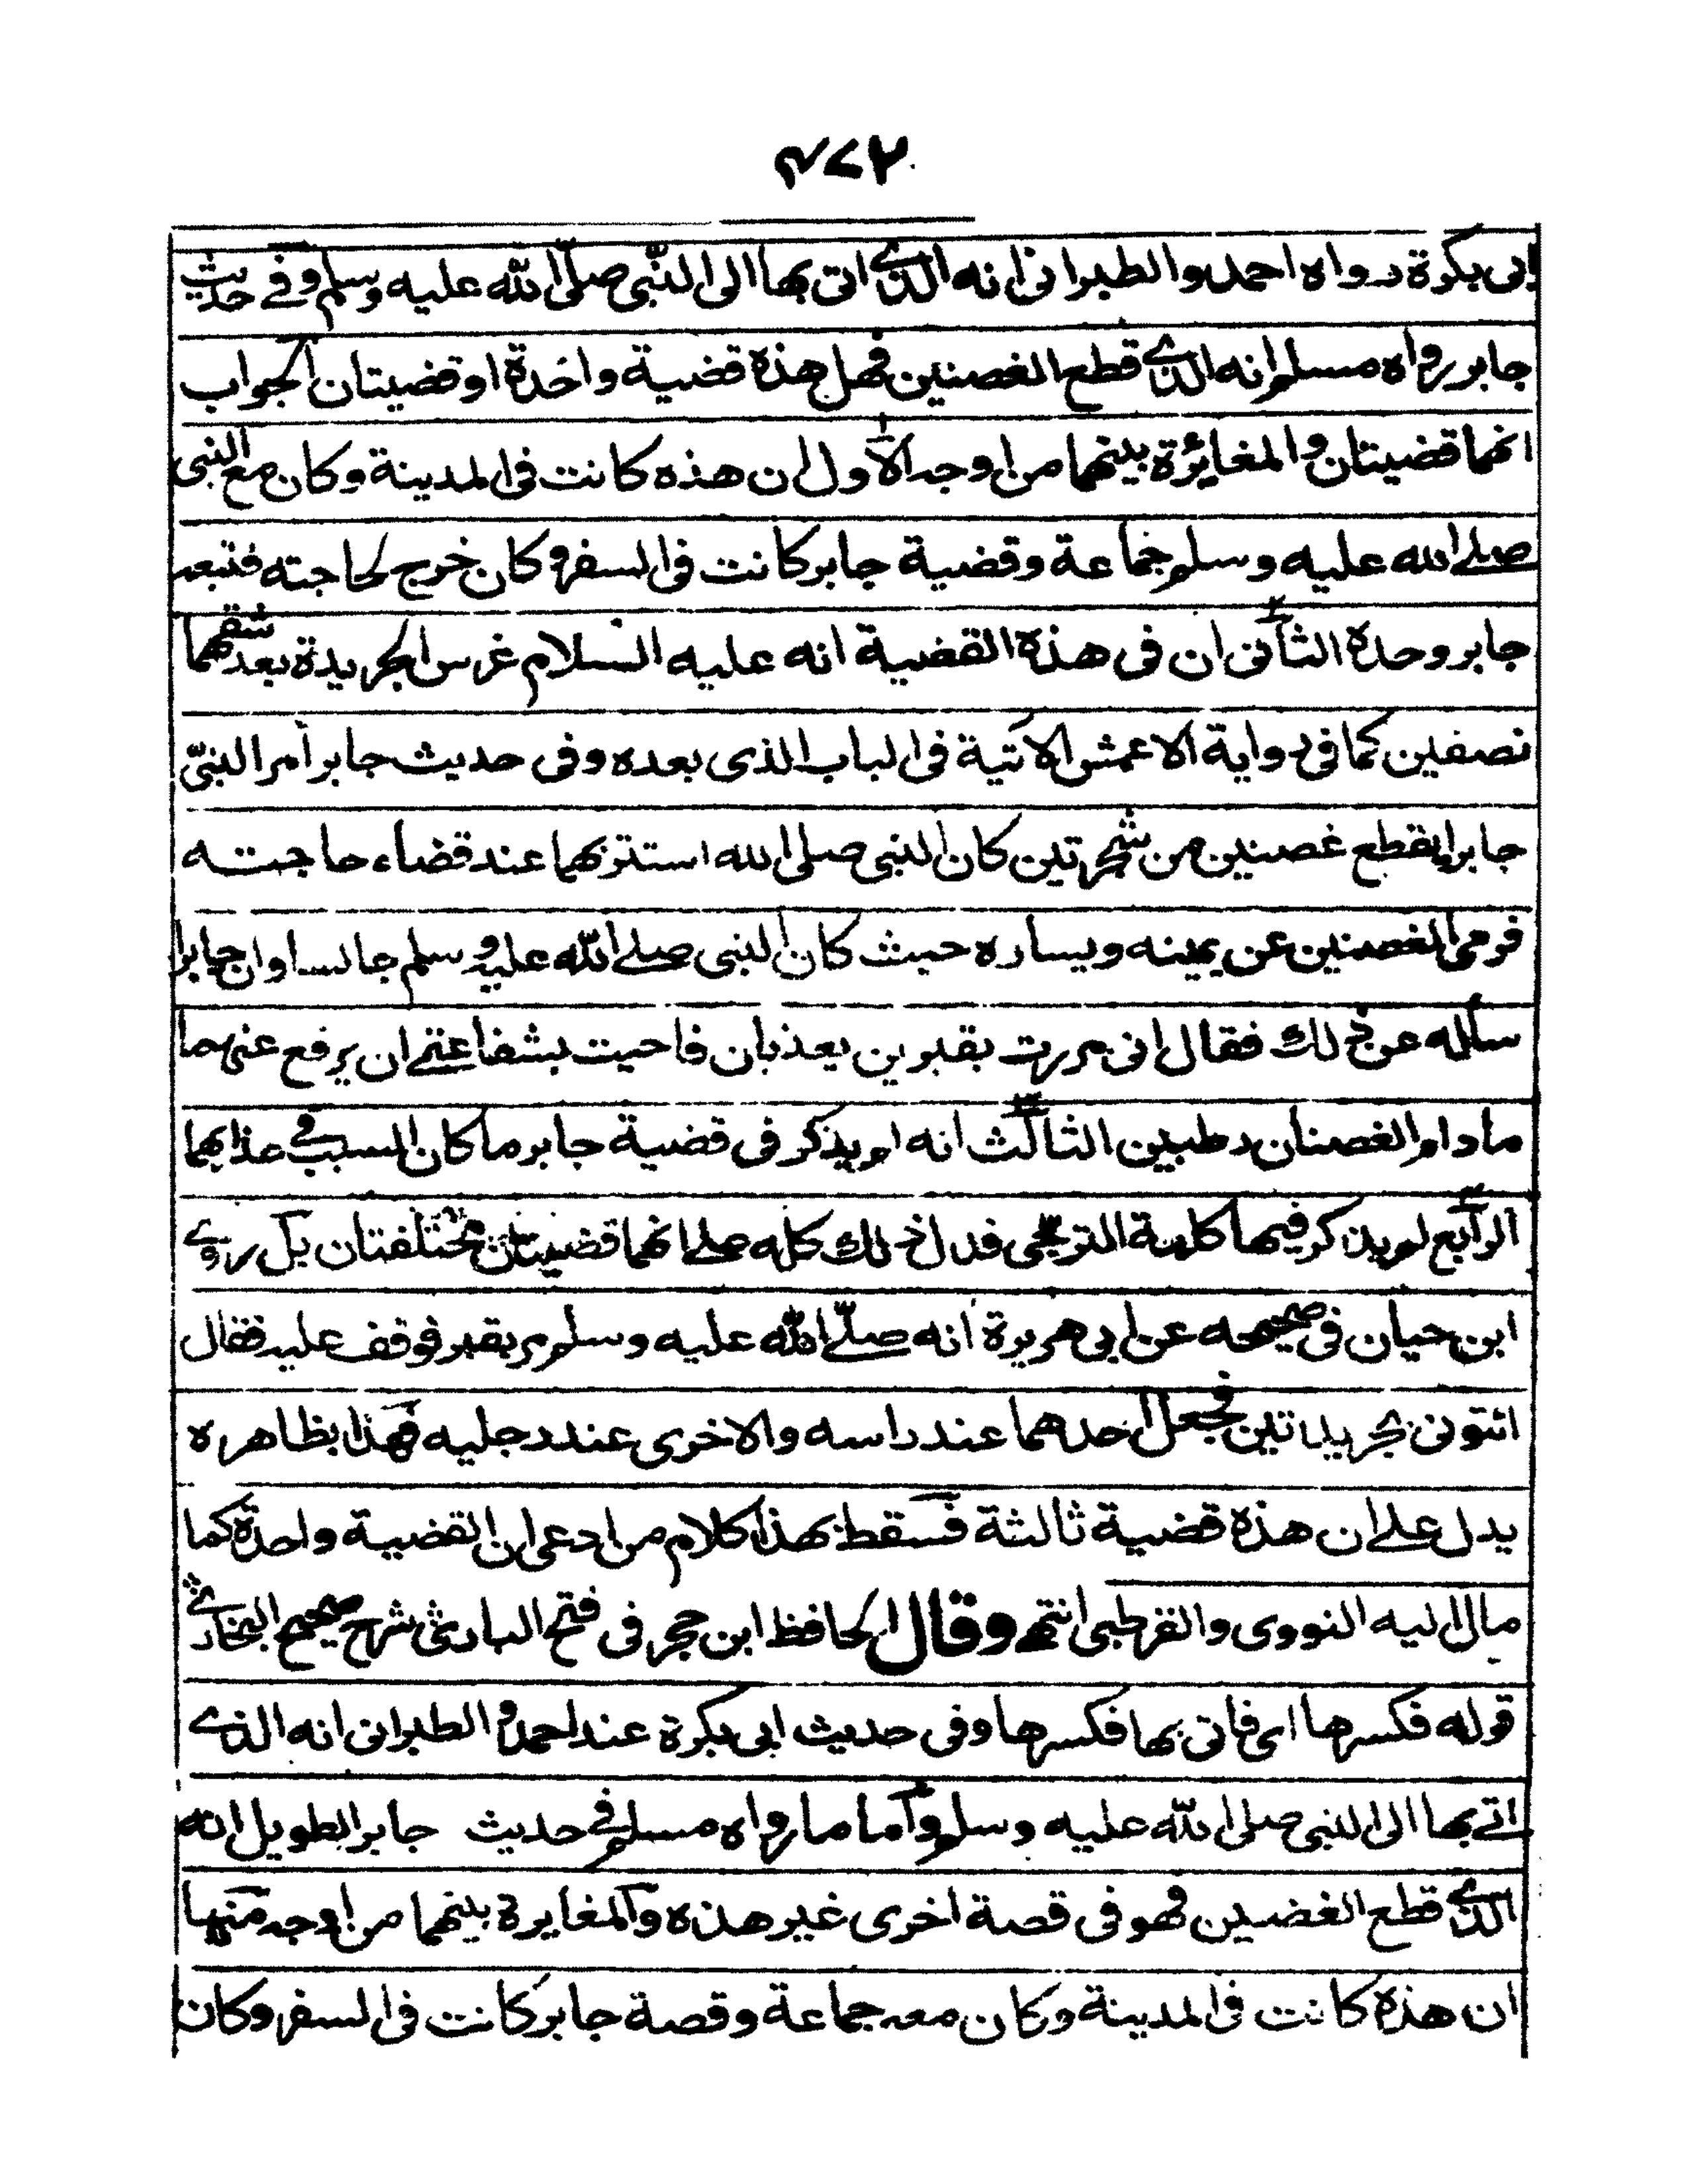 ۴۷۲
ابی بکرة رواه احمد والطبرانی انه الذے اتی بها الی النبی صلی الله علیه وسلم وفے حدیث
جابر رواه مسلم انه الذے قطع الغصنین فهل هذه قضیة واحدة او قضیتان الجواب
انهما قضیتان والمغائرة بینهما من اوجه الاول ان هذه کانت فی المدینة وکان مع النبی
صلے الله علیه وسلم جماعة وقضیة جابر کانت فی السفر وکان خرج لحاجته فتبعه
جابر وحدة الثانی ان فی هذه القضیة انه علیه السلام غرس الجریدة بعد شقهما
نصفین کما فی روایة الاعمش الاتیة فی الباب الذی بعده وفی حدیث جابر امر النبی
جابرا بقطع غصنین من شجرتین کان النبی صلی الله استتر بهما عند قضاء حاجته
فرمی الغصنین عن یمینه ویساره حیث کان النبی صلے الله علیه وسلم جالسا وان جابرا
سأله عن ذلك فقال انی مررت بقبرین یعذبان فاحیت بشفاعتے ان یرفع عنهما
مادام الغصنان رطبین الثالث انه لم یذکر فی قضیة جابر ما کان السبب فے عذابهما
الرابع لم یذکر فیها کلمة الترجی فدل ذلك کله علے انهما قضیتان مختلفتان بل روے
ابن حیان فی صحیحه عن ابی هریرة انه صلے الله علیه وسلم مر بقبر فوقف علیه فقال
ائتونی بجریدتین فجعل احدهما عند راسه والاخری عند رجلیه فهذا بظاهره
یدل علے ان هذه قضیة ثالثة فسقط بهذا کلام من ادعی ان القضیة واحدة کما
مال الیه النووی والقرطبی انتهی وقال الحافظ ابن حجر فی فتح الباری شرح صحیح البخارے
قوله فکسرها ای فاتی بها فکسرها وفی حدیث ابی بکرة عند احمد والطبرانی انه الذے
اتے بها الی النبی صلی الله علیه وسلم واما ما رواه مسلم فے حدیث جابر الطویل انه
الذے قطع الغضین فهو فی قصة اخری غیر هذه والمغایرة بینهما من اوجه منها
ان هذه کانت فی المدینة وکان معه جماعة وقصة جابر کانت فی السفر وکان